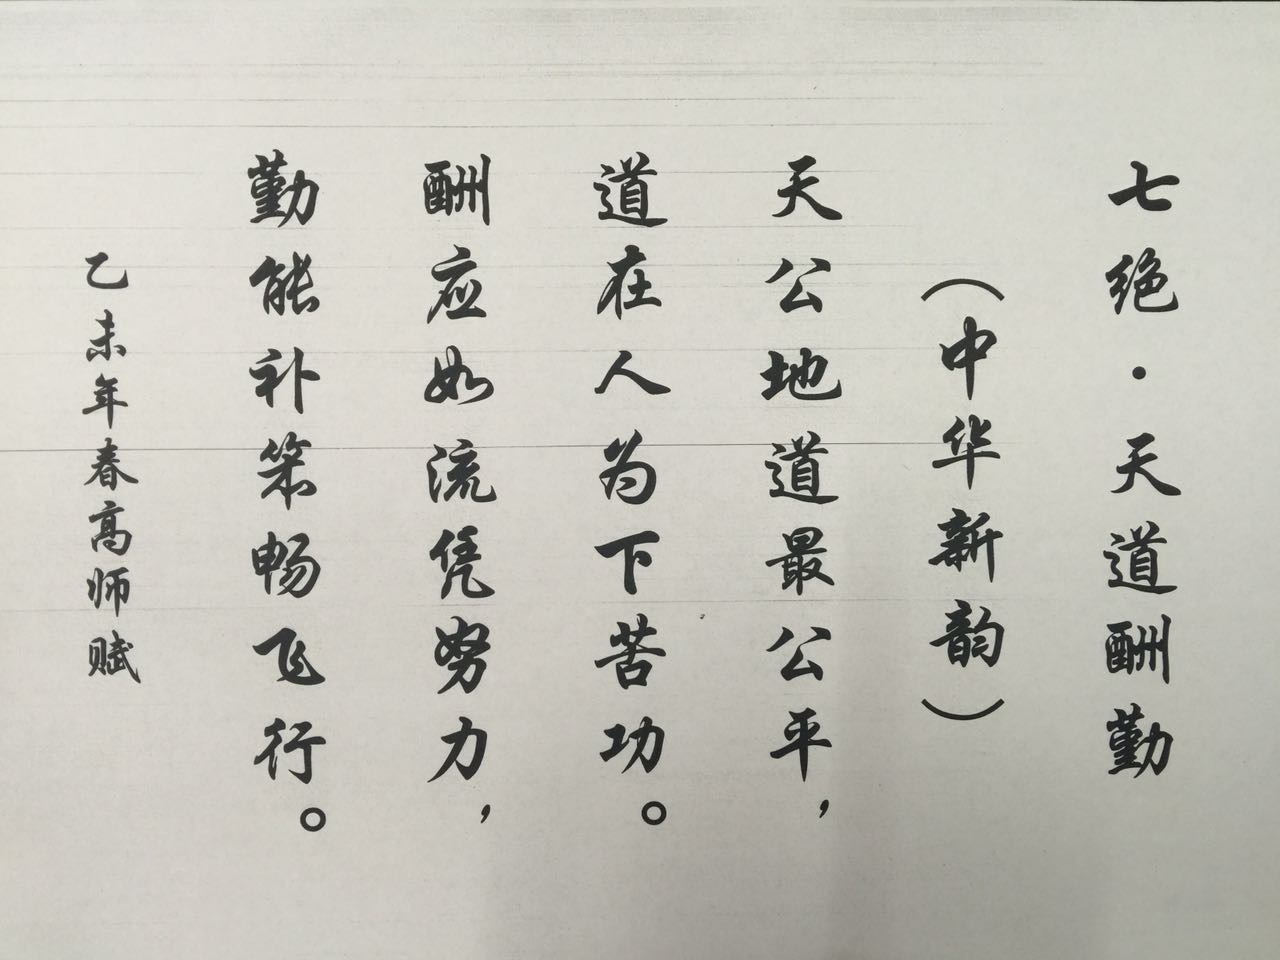 七绝·天道酬勤
（中华新韵）
天公地道最公平，
道在人为下苦功。
酬应如流凭努力，
勤能补笨畅飞行。
乙未年春高师赋